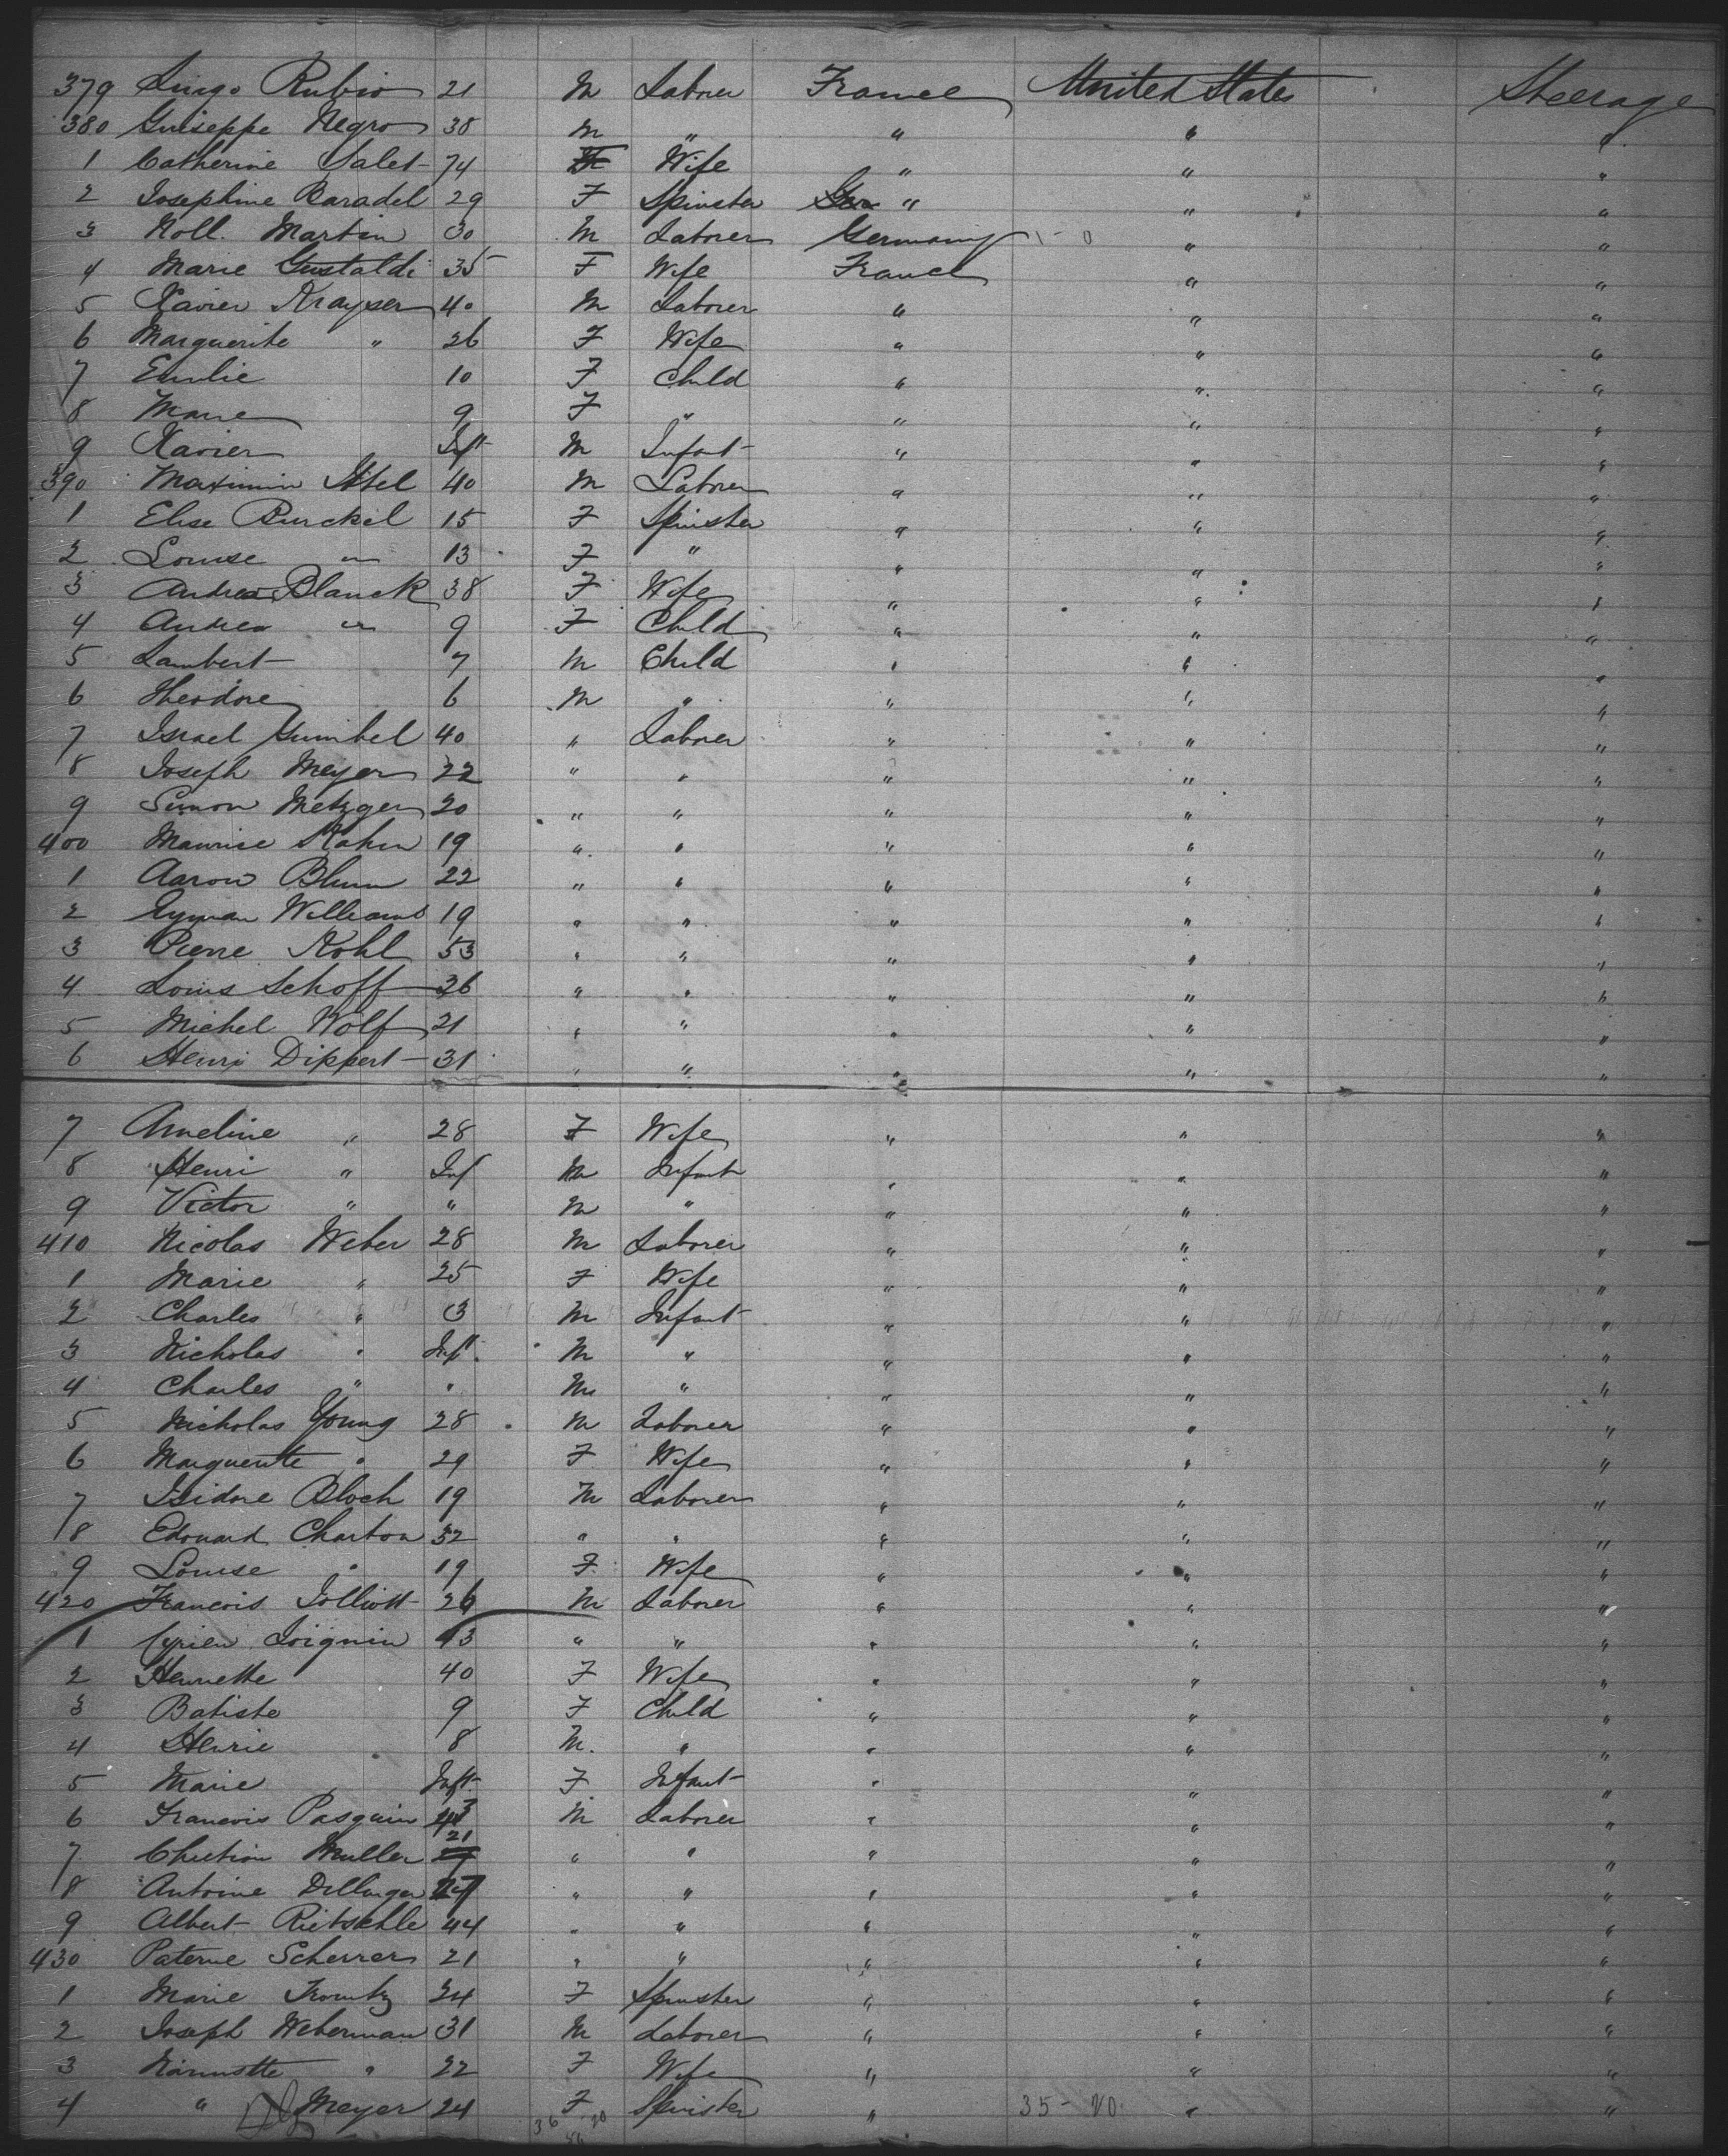 379 Luigo Rubio 21 M Laborer France United States Steerage
380 Guiseppe Negro 38 M " " " "
1 Catherine Salet 74 F Wife " " "
2 Josephine Baradel 29 F Spinster " " "
3 Noll. Martin 30 M Laborer Germany " "
4 Marie Gustaldi 35 F Wife France " "
5 Xavier Krayser 40 M Laborer " " "
6 Marguerite " 26 F Wife " " "
7 Emilie 10 F Child " " "
8 Marie 9 F " " " "
9 Xavier Inft M Infant " " "
390 Maximin 40 M Laborer " " "
1 Elise Burckel 15 F Spinster " " "
2 Louise " 13 F " " " "
3 Andrea Blanck 38 F Wife " " "
4 Andrea " 9 F Child " " "
5 Lambert 7 M Child " " "
6 Theodore 6 M " " " "
7 Israel Gumbel 40 " Laborer " " "
8 Joseph Meyer 22 " " " " "
9 Simon Metzger 20 " " " " "
400 Maurice Kahn 19 " " " " "
1 Aaron Blum 22 " " " " "
2 Lyman Williams 19 " " " " "
3 Pierre Kohl 53 " " " " "
4 Louis Schoff 26 " " " " "
5 Michel Wolf 21 " " " " "
6 Henri Dippert 31 " " " " "
7 Ameline " 28 F Wife " " "
8 Henri " Inf M Infant " " "
9 Victor " " M " " " "
410 Nicolas Weber 28 M Laborer " " "
1 Marie " 25 F Wife " " "
2 Charles " 3 M Infant " " "
3 Nicholas " Inft M " " " "
4 Charles " " M " " " "
5 Nicholas Young 28 M Laborer " " "
6 Marguerite " 29 F Wife " " "
7 Isidore Bloch 19 M Laborer " " "
8 Edouard Charton 32 " " " " "
9 Louise " 19 F Wife " " "
420 Francois Jolliott 26 M Laborer " " "
1 Cyrien Loignin 43 " " " " "
2 Henriette 40 F Wife " " "
3 Batiste 9 F Child " " "
4 Henrie 8 M. " " " "
5 Marie Inft F Infant " " "
6 Francois Pasquin 43 M Laborer " " "
7 Christian Muller 21 " " " " "
8 Antoine Dillinger 27 " " " " "
9 Albert Rietschle 44 " " " " "
430 Paterne Scherrer 21 " " " " "
1 Marie Tromtz 24 F Spinster " " "
2 Joseph Weberman 31 M Laborer " " "
3 Nannette " 22 F Wife " " "
4 " Meyer 24 F Spinster " 35-20 " "